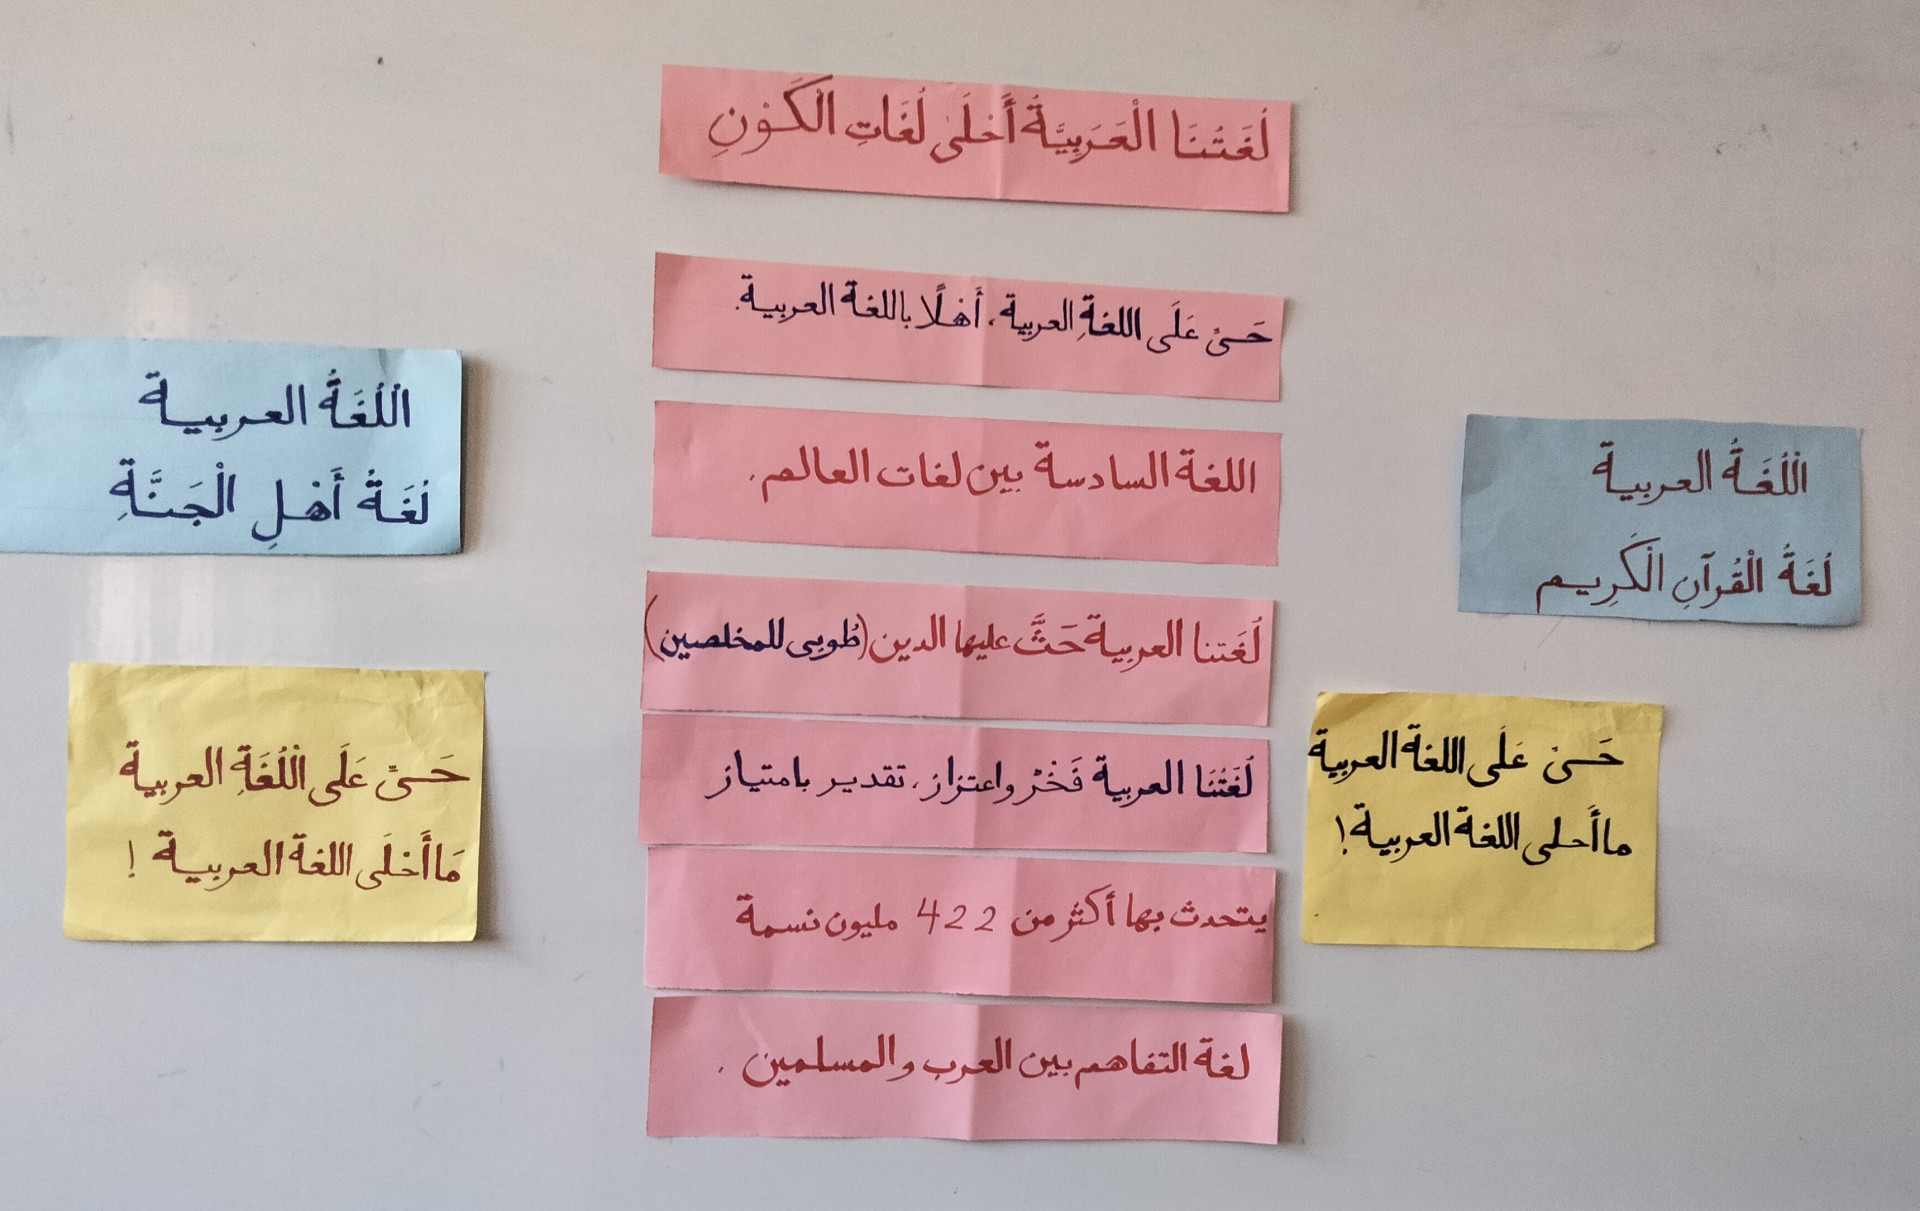 لُغَتُنَا الْعَرَبِيَّةُ أَحْلَىٰ لُغَاتِ الْكَوْنِ
حَيَّ عَلَى اللغةِ العربية، أَهْلًا باللغة العربية.
اللغة السادسة بين لغات العالم.
لُغَتنا العربية حَثَّ عليها الدين (طُوبى للمخلصين)
لُغَتُنَا العربية فَخْرٌ واعتزاز، تقدير بامتياز
يتحدث بها أكثر من 422 مليون نسمة
لغة التفاهم بين العرب والمسلمين.
اللُّغَةُ العربية
لُغَةُ الْقُرآنِ الْكَرِيم
حَيَّ عَلَى اللغة العربية
ما أَحلى اللغة العربية!
اللُّغَةُ العربية
لُغَةُ أَهْلِ الْجَنَّةِ
حَيَّ عَلَى اللُّغَةِ العربية
مَا أَحْلَى اللغة العربية !